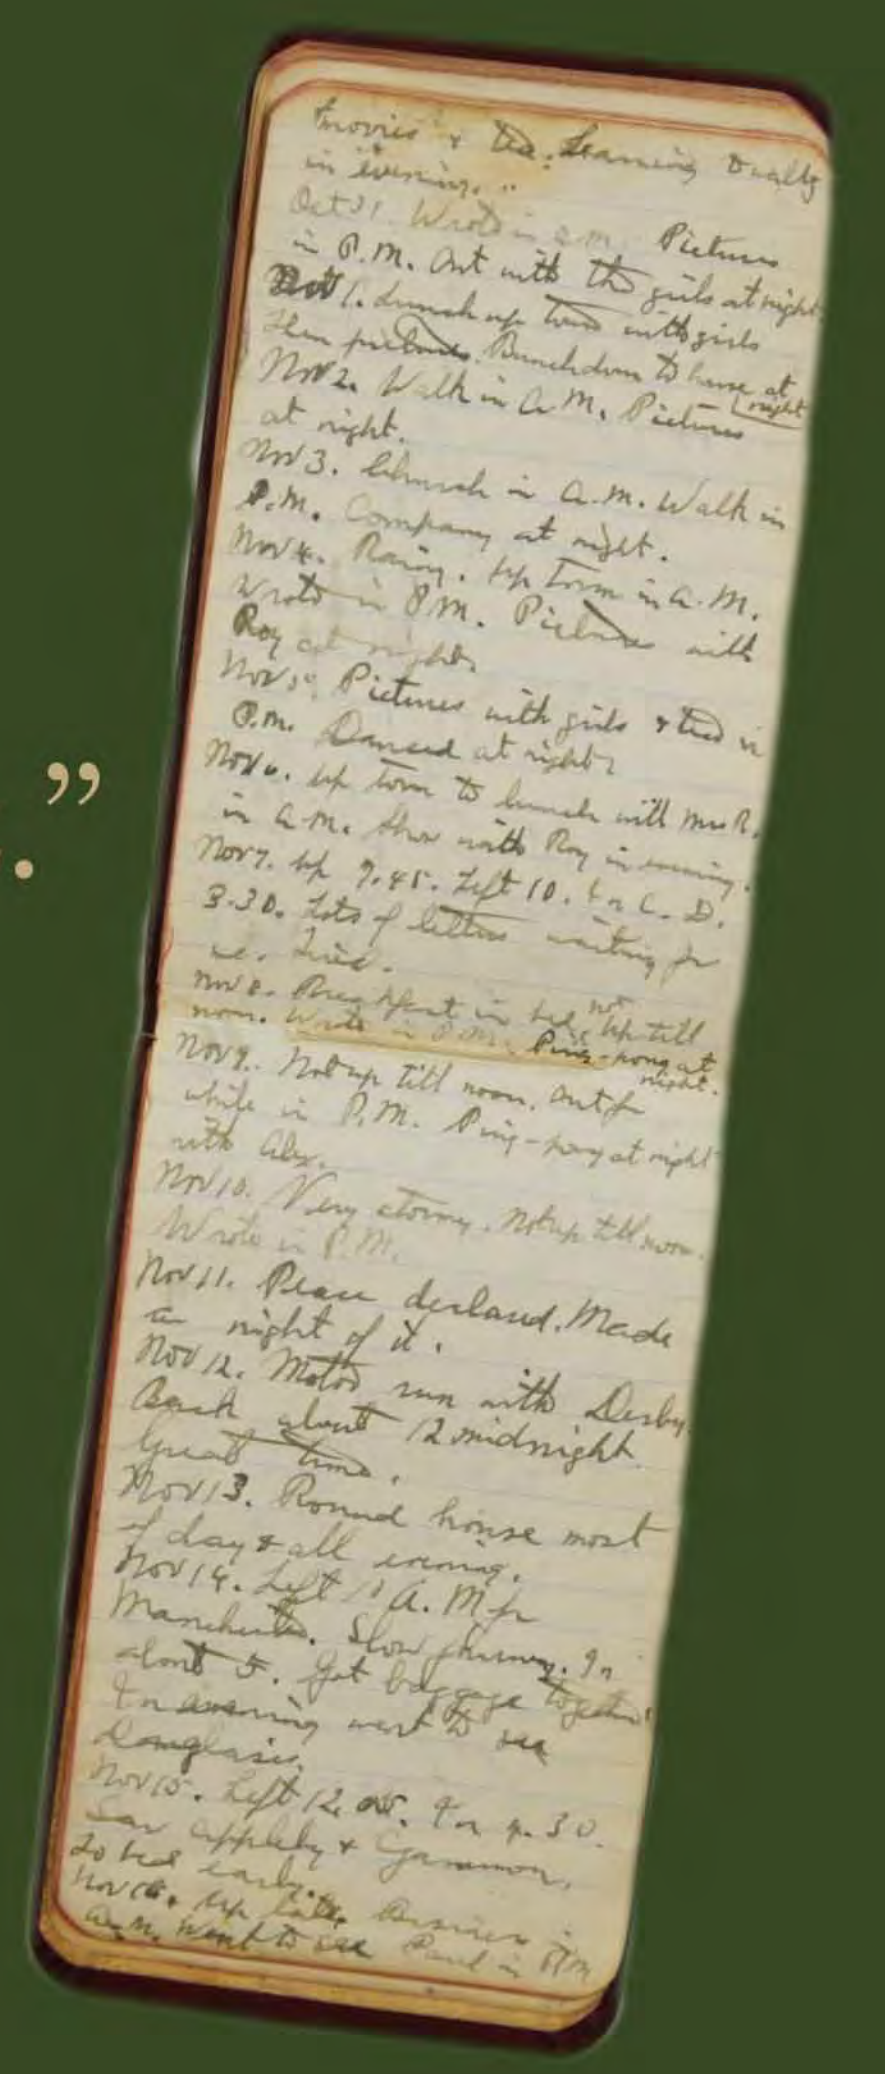 "movies" & tea. Learning to waltz
in evening.
Oct 31. Wrote in a.m. Pictures
in P.M. Out with the girls at night.
Nov 1. Lunch up town with girls
then pictures. Bunch down to house at
night
Nov 2. Walk in A.M. Pictures
at night.
Nov 3. Church in A.M. Walk in
P.M. Company at night.
Nov 4. Rainy. Up town in A.M.
Wrote in P.M. Pictures with
Roy at night.
Nov 5. Pictures with girls & tea in
P.M. Danced at night.
Nov 6. Up town to lunch with Mrs R.
in A.M. Show with Roy in evening.
Nov 7. Up 9.45. Left 10. In C. D.
3.30. Lots of letters waiting for
me. Tired.
Nov 8. Breakfast in bed, not up till
noon. Wrote in P.M. Ping-pong at
night.
Nov 9. Not up till noon. Out for
while in P.M. Ping-pong at night
with Alex.
Nov 10. Very stormy. Not up till noon.
Wrote in P.M.
Nov 11. Peace declared. Made
a night of it.
Nov 12. Motor run with Derby.
Back about 12 midnight.
Great time.
Nov 13. Round house most
of day & all evening.
Nov 14. Left A.M. for
Manchester. Slow journey. In
about 5. Got baggage together
In evening went to see
Douglasis.
Nov 15. Left 12.05. In 4.30.
Saw Appleby & Gammon.
To bed early.
Nov 16. Up late. Business in
a.m. Went to see Paul in P.M.
”
.